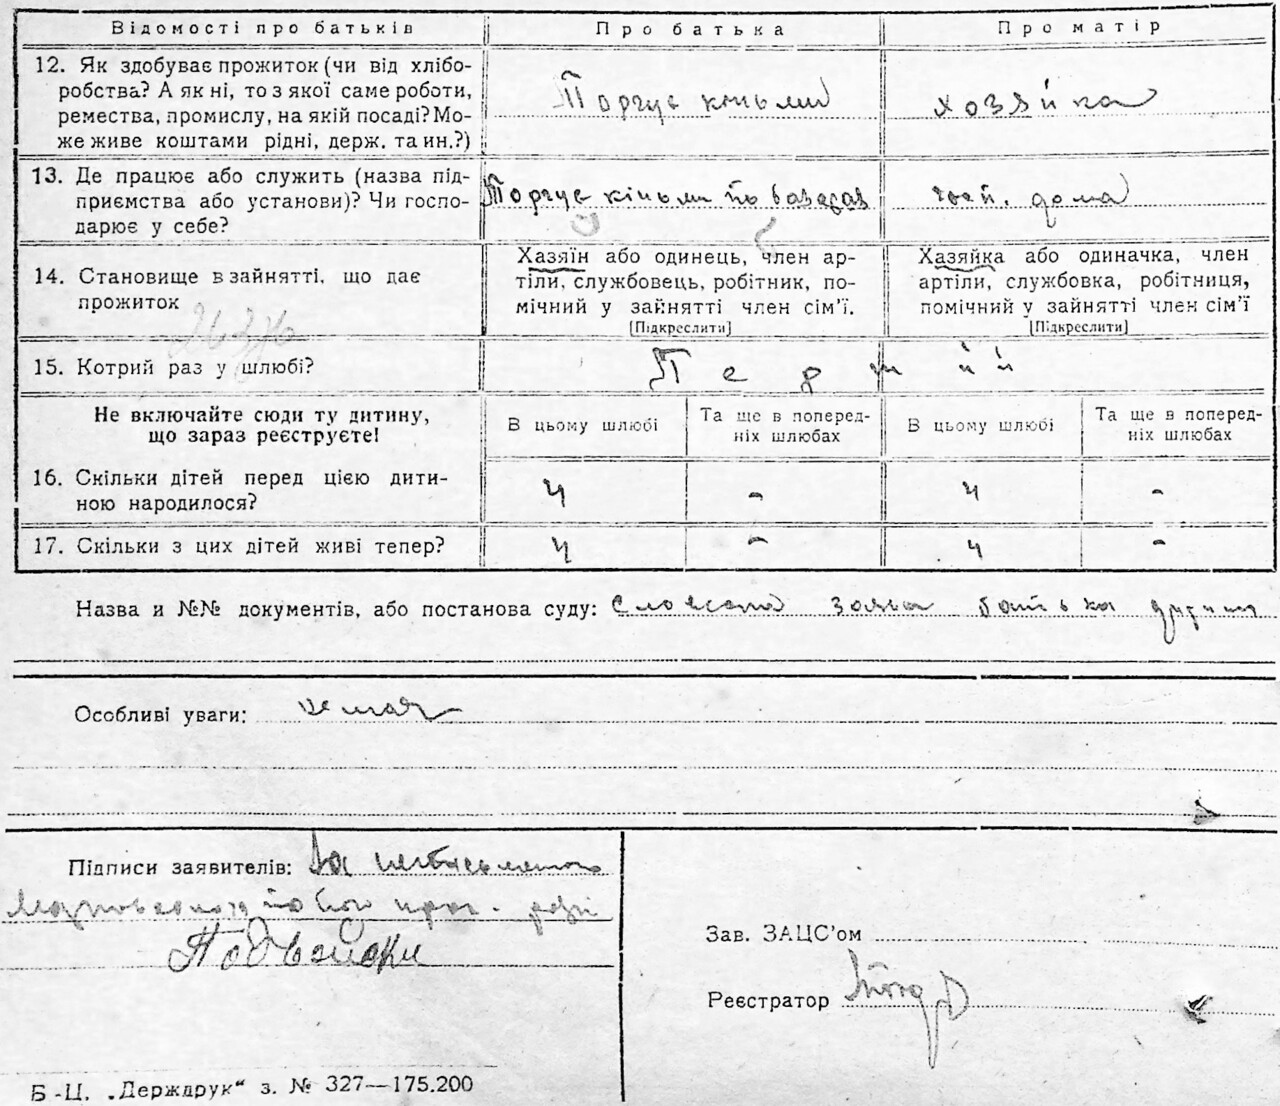 Відомості про батьків Про батька Про матір
12. Як здобуває прожиток (чи від хлібо-
робства? А як ні, то з якої саме роботи,
ремества, промислу, на якій посаді? Мо-
же живе коштами рідні, держ. та ин.?)
Торгує кіньми
хозяйка
13. Де працює або служить (назва під-
приємства або установи)? Чи госпо-
дарює у себе?
Торгує кіньми по базарах
дома
14. Становище в зайнятті, що дає
прожиток
Хазяїн або одинець, член ар-
тіли, службовець, робітник, по-
мічний у зайнятті член сім'ї.
[Підкреслити]
Хазяйка або одиначка, член
артіли, службовка, робітниця,
помічний у зайнятті член сім'ї
[Підкреслити]
15. Котрий раз у шлюбі?
Перший
Не включайте сюди ту дитину,
що зараз реєструєте!
В цьому шлюбі
Та ще в поперед-
ніх шлюбах
В цьому шлюбі
Та ще в поперед-
ніх шлюбах
16. Скільки дітей перед цією дити-
ною народилося?
4 - 4 -
17. Скільки з цих дітей живі тепер? 4 - 4 -
Назва и №№ документів, або постанова суду: заява батька
Особливі уваги: немає
Підписи заявителів: За неписьменного
Зав. ЗАЦС'ом
Реєстратор
Б-Ц. „Держдрук" з. № 327—175.200